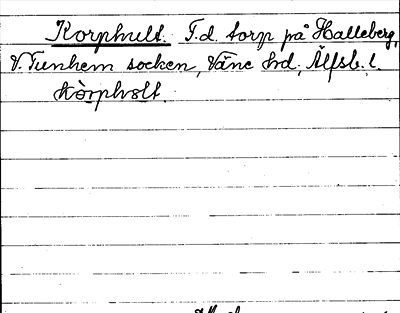 Korphult. F.d. torp på Halleberg,
V. Tunhem socken, Väne hd, Älfsb. l.
kòrphslt.